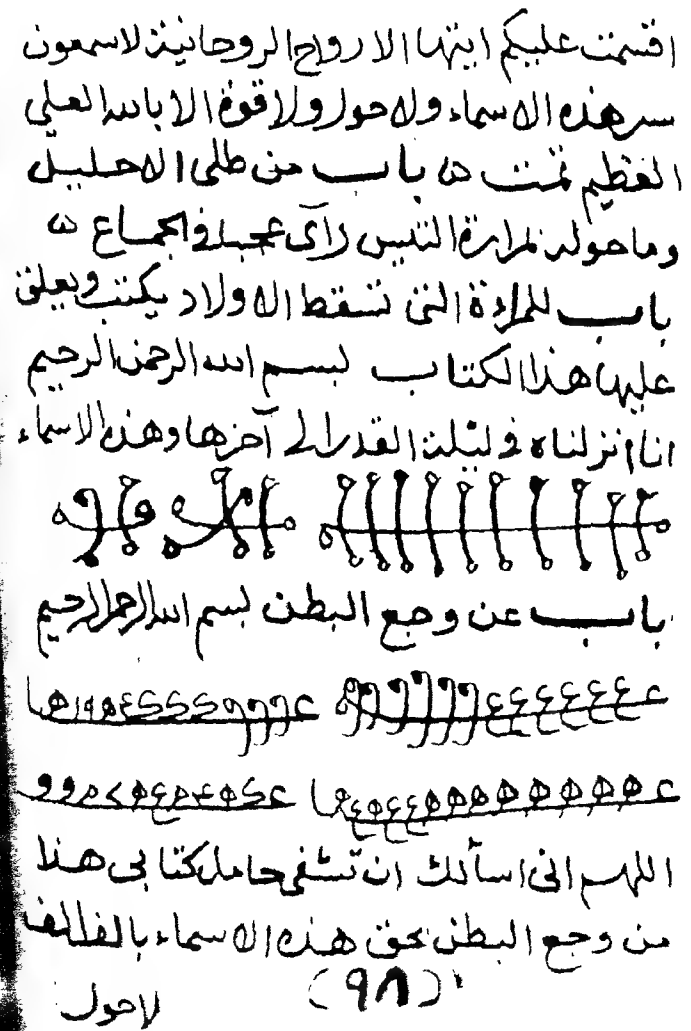 اقسمت عليكم ايتها الارواح الروحانية لاسمعون
سر هذه الاسماء ولا حول ولا قوة الا بالله العلي
العظيم تمت ه باب من طلى الاحليل
وما حوله بمرارة التيس رآى عجبا في الجماع ه
باب للمراءة التى تسقط الاولاد يكتب ويعلق
عليها هذا الكتاب بسم الله الرحمن الرحيم
انا انزلناه في ليلة القدر الى آخرها وهذه الاسماء
باب عن وجع البطن بسم الله الرحمن الرحيم
اللهم انى اسألك ان تشفى حامل كتابى هذا
من وجع البطن بحق هذه الاسماء بالف الف
(٩٨)
لاحول